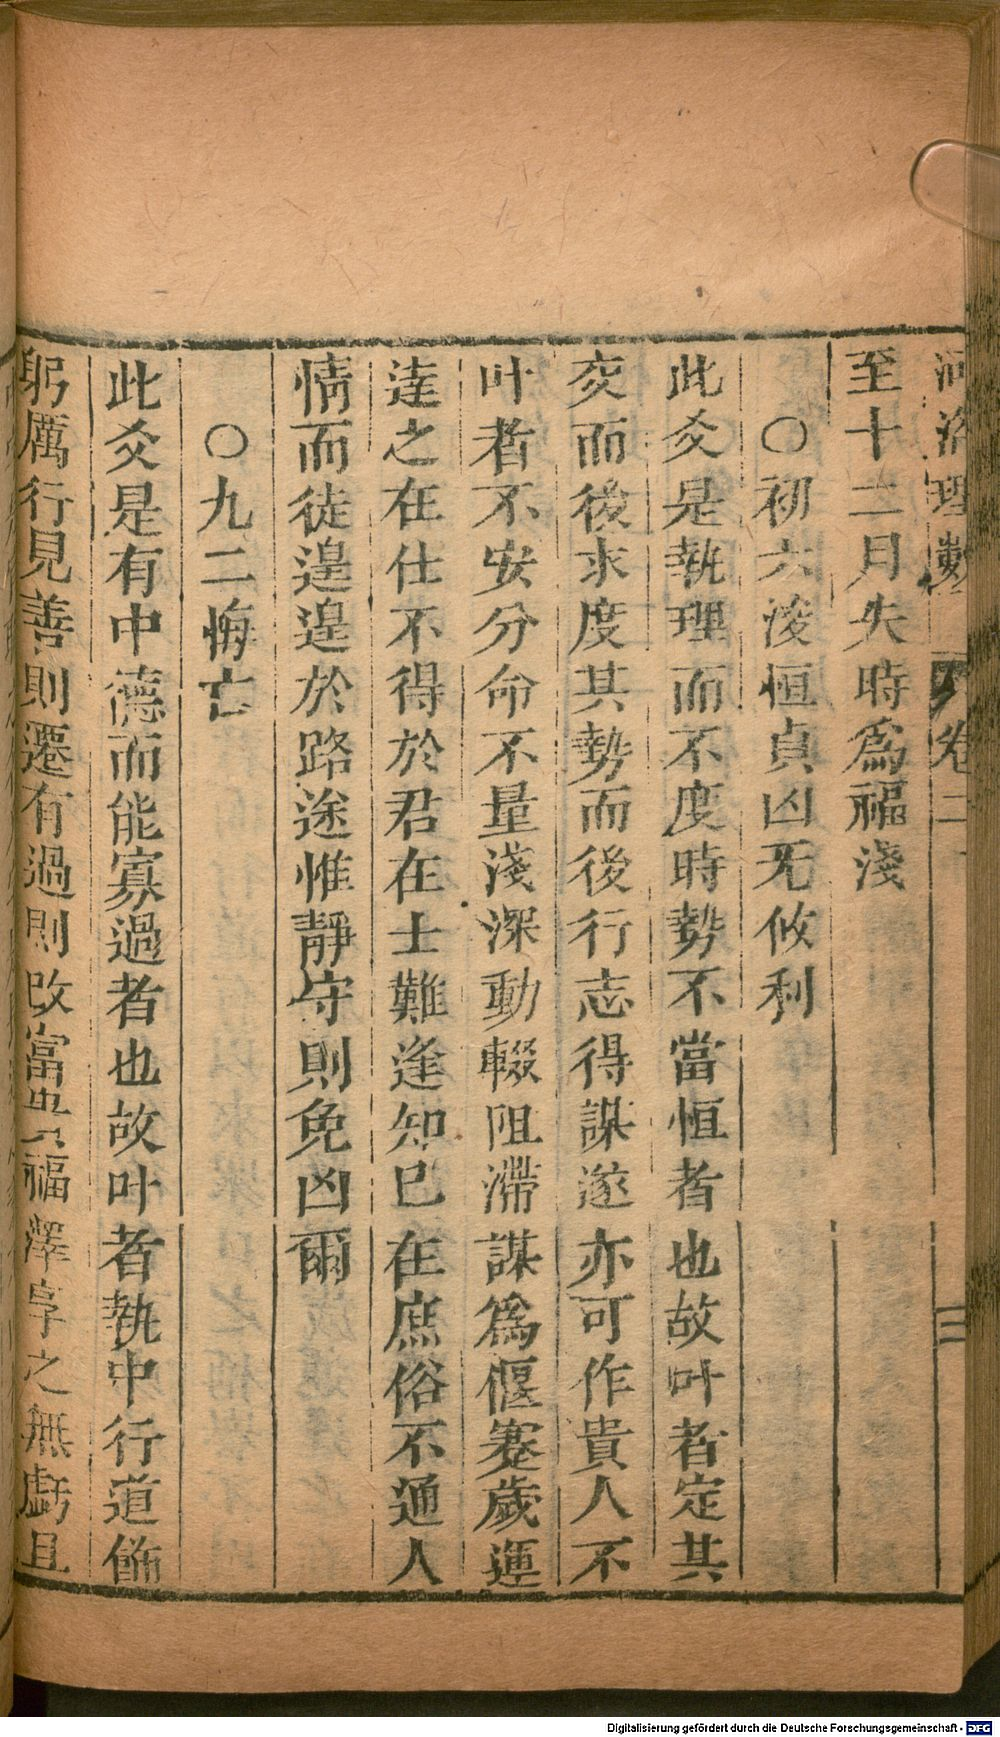 河洛理數 卷二 三
至十二月失時爲福淺
○初六浚恒貞凶无攸利
此爻是執理而不度時勢不當恒者也故叶者定其
交而後求度其勢而後行志得謀遂亦可作貴人不
叶者不安分命不量淺深動輟阻滯謀爲偃蹇歲運
逹之在仕不得於君在士難逢知已在庶俗不通人
情而徒遑遑於路途惟靜守則免凶爾
○九二悔亡
此爻是有中德而能寡過者也故叶者執中行道飾
躬厲行見善則遷有過則改富貴福澤享之無虧且
Digitalisierung gefördert durch die Deutsche Forschungsgemeinschaft - DFG